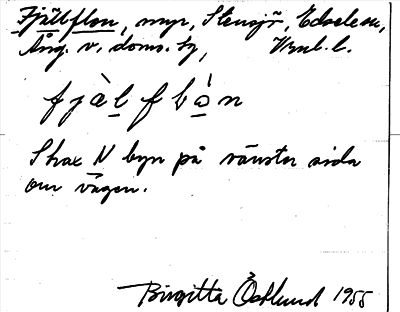 Fjällflon, myr, Stensjö, Edselesn,
Ång. v. doms. tg, Vrnl. l.
fjàl f bå̀n
Strax N byn på vänster sida
om vägen.
Birgitta Östlund 1955